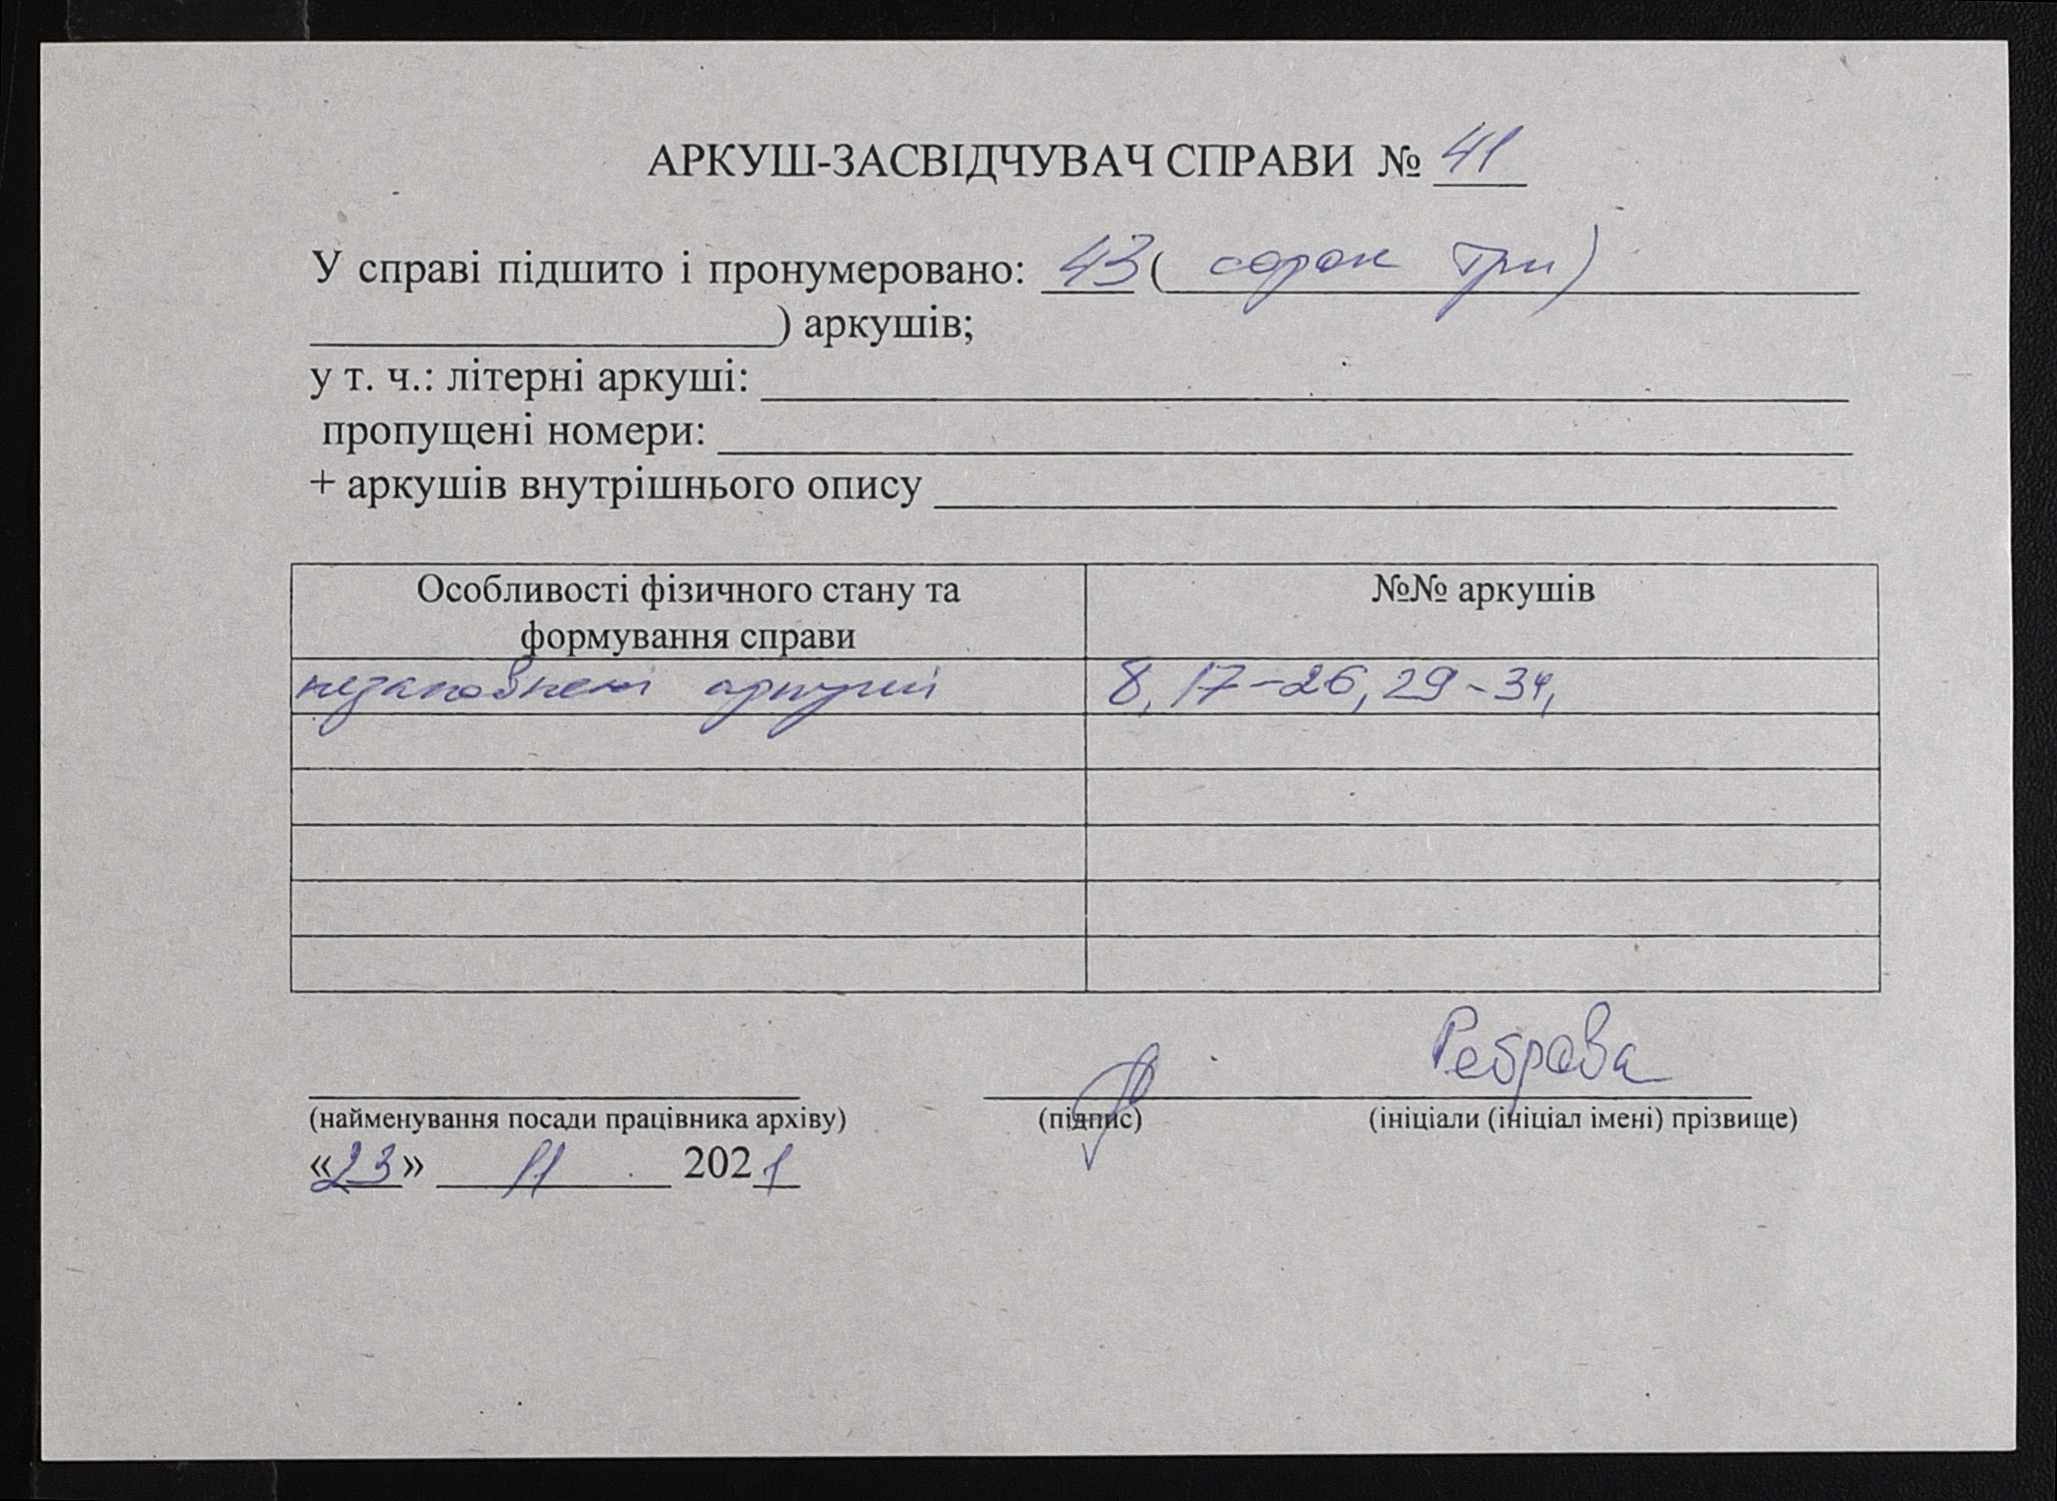 АРКУШ-ЗАСВІДЧУВАЧ СПРАВИ № 41
У справі підшито і пронумеровано: 43 ( сорок три)
) аркушів;
у т. ч.: літерні аркуші:
пропущені номери:
+ аркушів внутрішнього опису
Особливості фізичного стану та
формування справи
№№ аркушів
незаповнені аркуші 8, 17-26, 29-34,
Реброва
(найменування посади працівника архіву) (підпис) (ініціали (ініціал імені) прізвище)
«23» 11 2021